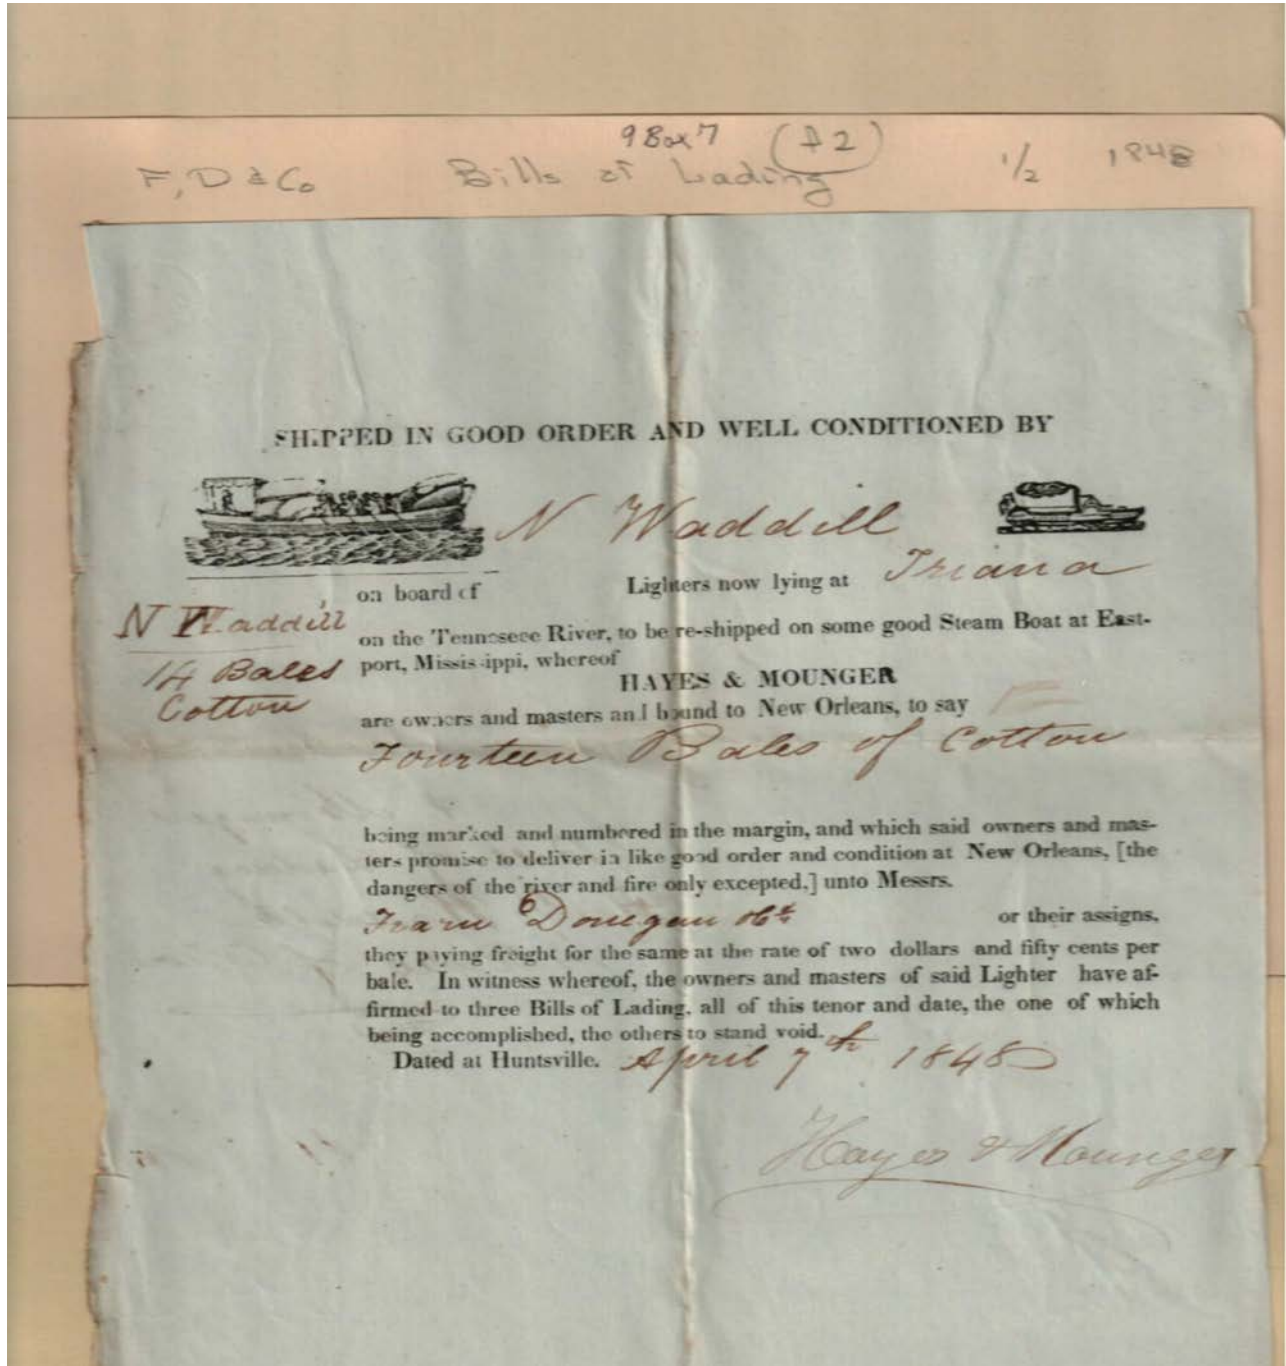 9 Box 7 (A2)
F, D & Co Bills of Lading 1/2 1848
SHIPPED IN GOOD ORDER AND WELL CONDITIONED BY
N Waddill
on board of Lighters now lying at Triana
N Waddill
on the Tennessee River, to be re-shipped on some good Steam Boat at East-
14 Bales
port, Mississippi, whereof
HAYES & MOUNGER
Cotton
are owners and masters and bound to New Orleans, to say
Fourteen Bales of Cotton
being marked and numbered in the margin, and which said owners and mas-
ters promise to deliver in like good order and condition at New Orleans, [the
dangers of the river and fire only excepted,] unto Messrs.
Donegan or their assigns,
they paying freight for the same at the rate of two dollars and fifty cents per
bale. In witness whereof, the owners and masters of said Lighter have af-
firmed to three Bills of Lading, all of this tenor and date, the one of which
being accomplished, the others to stand void.
Dated at Huntsville. April 7th 1848
Hayes & Mounger